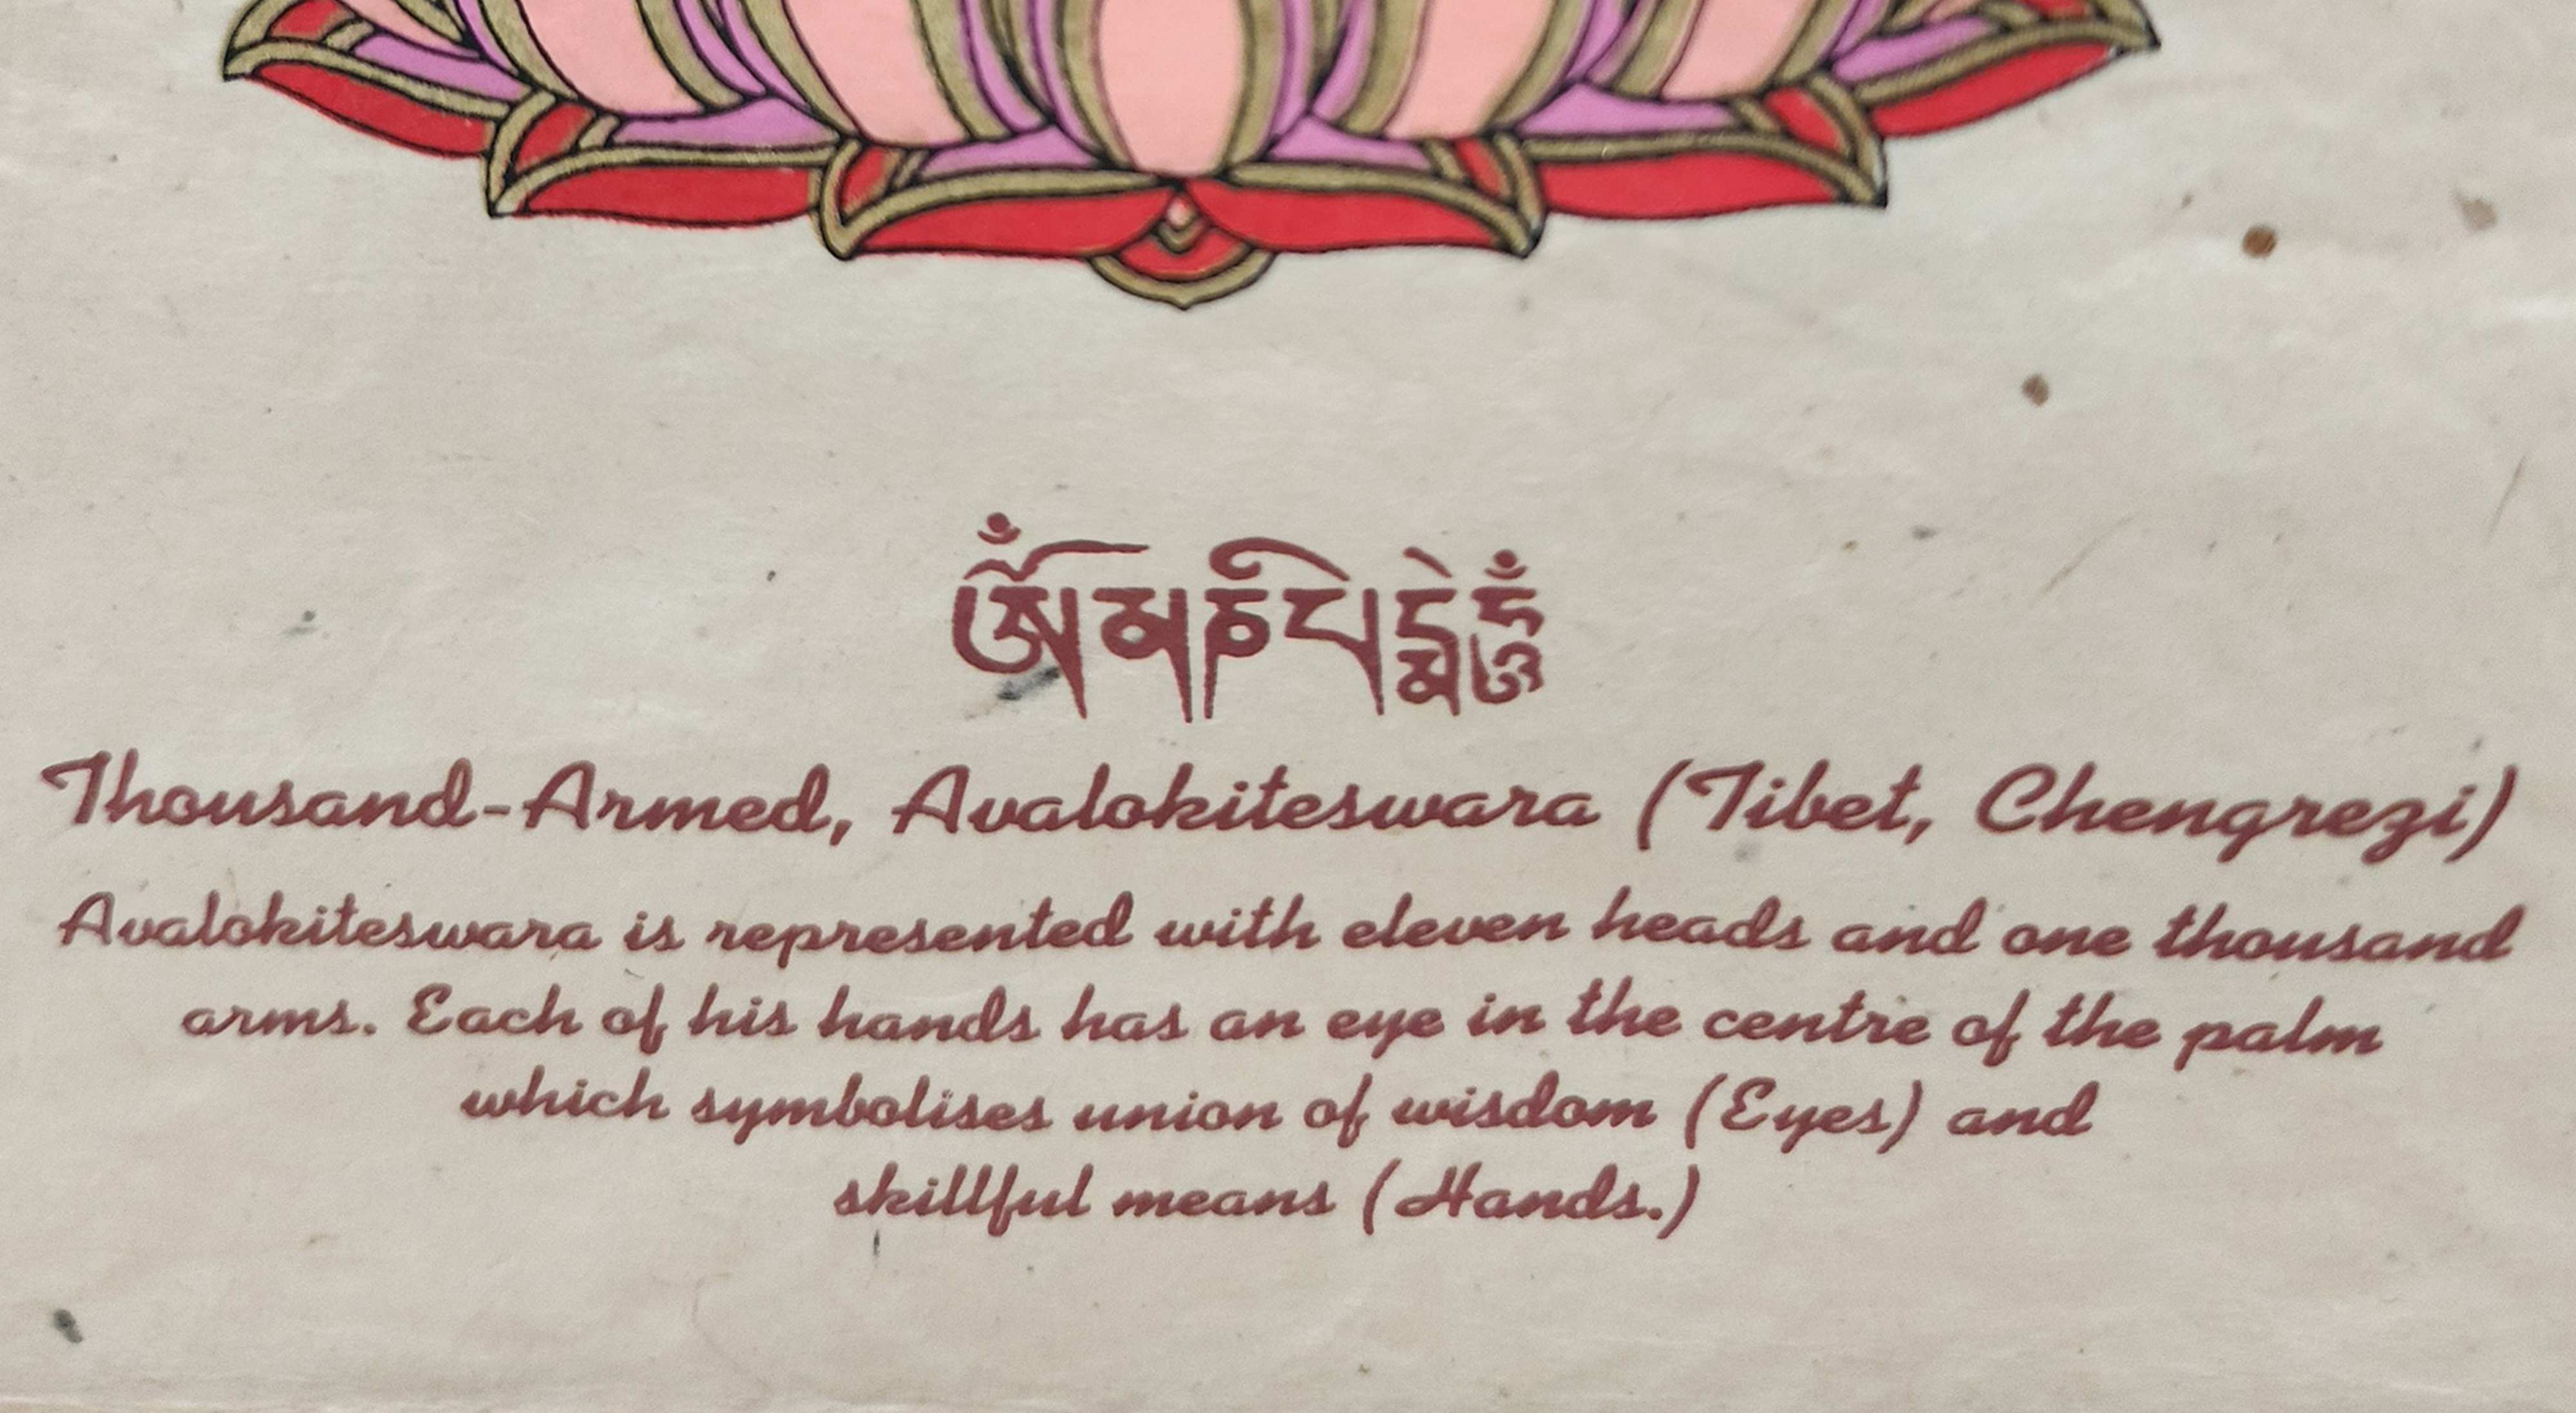 ༀམཎིཔདྨེཧཱུྃ
Thousand-Armed, Avalokiteswara (Tibet, Chengrezi)
Avalokiteswara is represented with eleven heads and one thousand
arms. Each of his hands has an eye in the centre of the palm
which symbolises union of wisdom (Eyes) and
skillful means (Hands.)